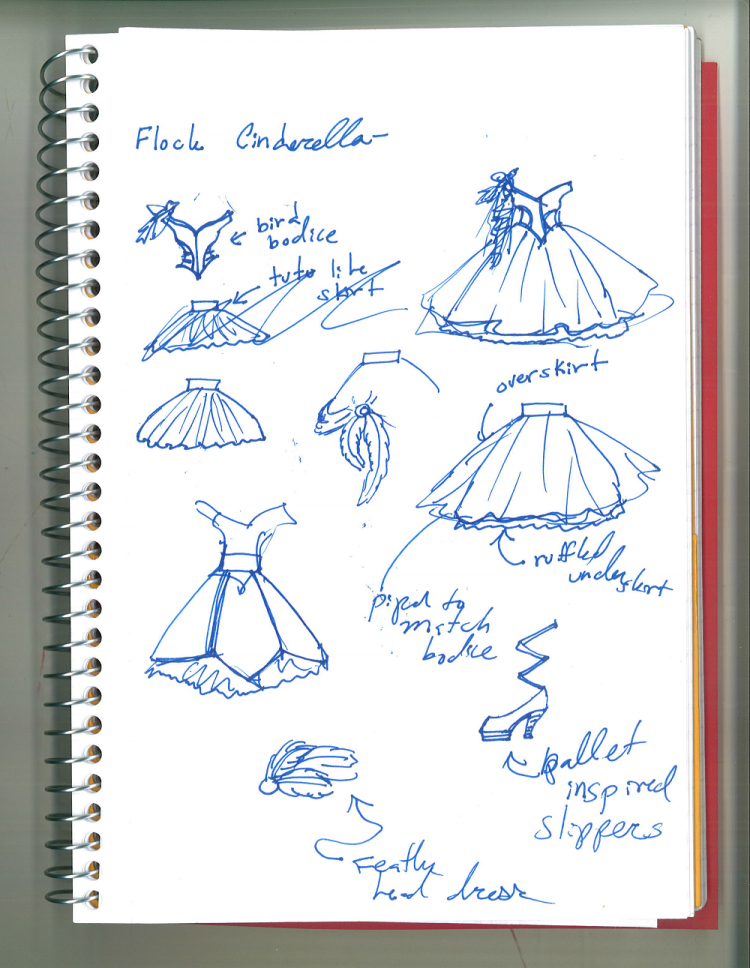 Flock Cinderella-
bird
bodice
tutu like
skirt
overskirt
ruffled
underskirt
piped to
match
bodice
ballet
inspired
slippers
Feathr
head dress